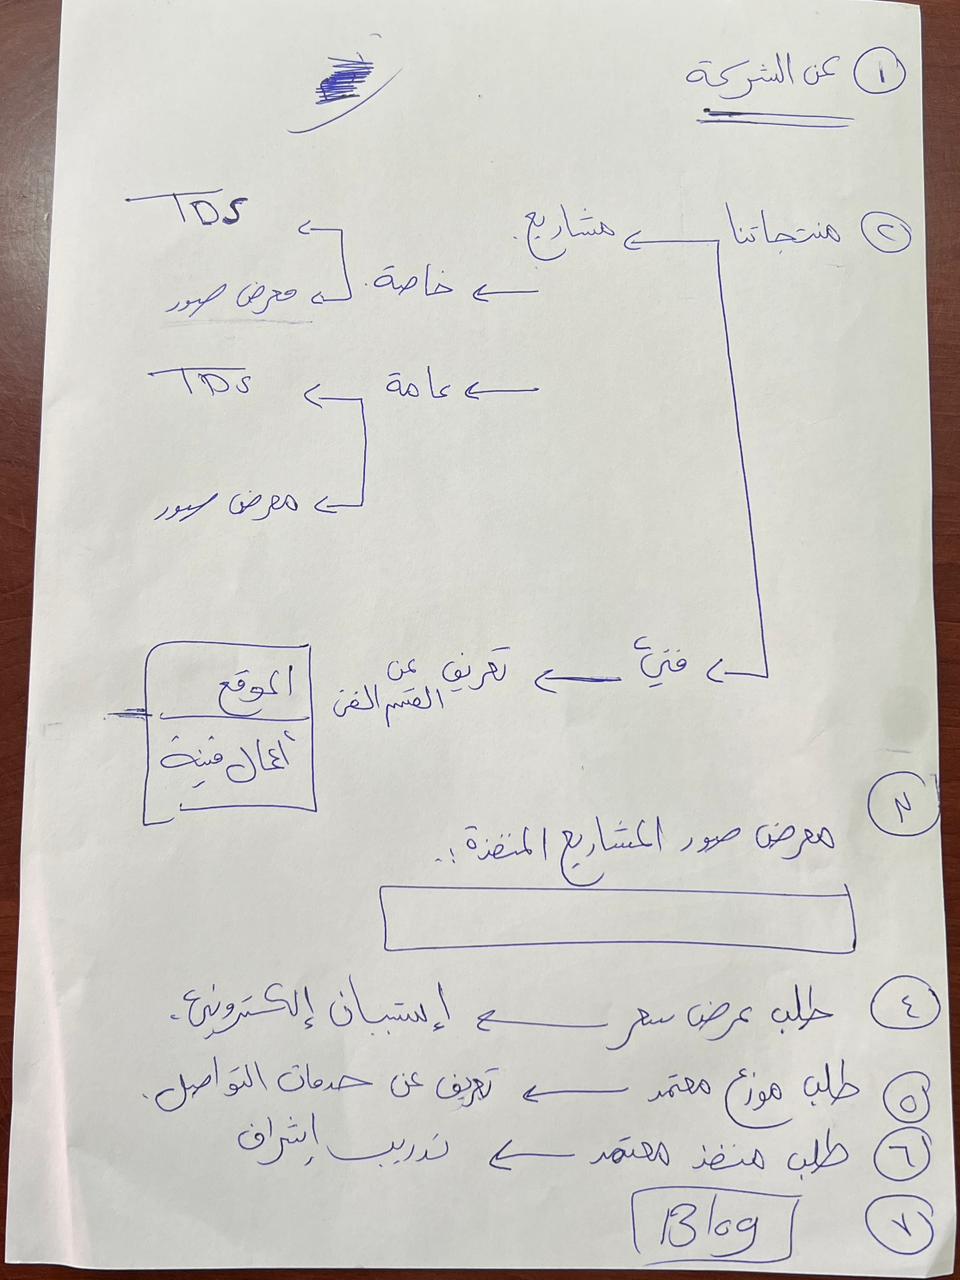 ١ عن الشركة
٢ منتجاتنا ← مشاريع
← خاصة ← TDS
← معرض صور
← عامة ← TDS
← معرض صور
← فني ← تعريف عن القسم الفني
الموقع
أعمال فنية
٣
معرض صور المشاريع المنفذة :
٤ طلب عرض سعر ← إستبيان إلكتروني.
٥ طلب موزع معتمد ← تعريف عن خدمات التواصل.
٦ طلب منفذ معتمد ← تدريب إشراف
٧ Blog